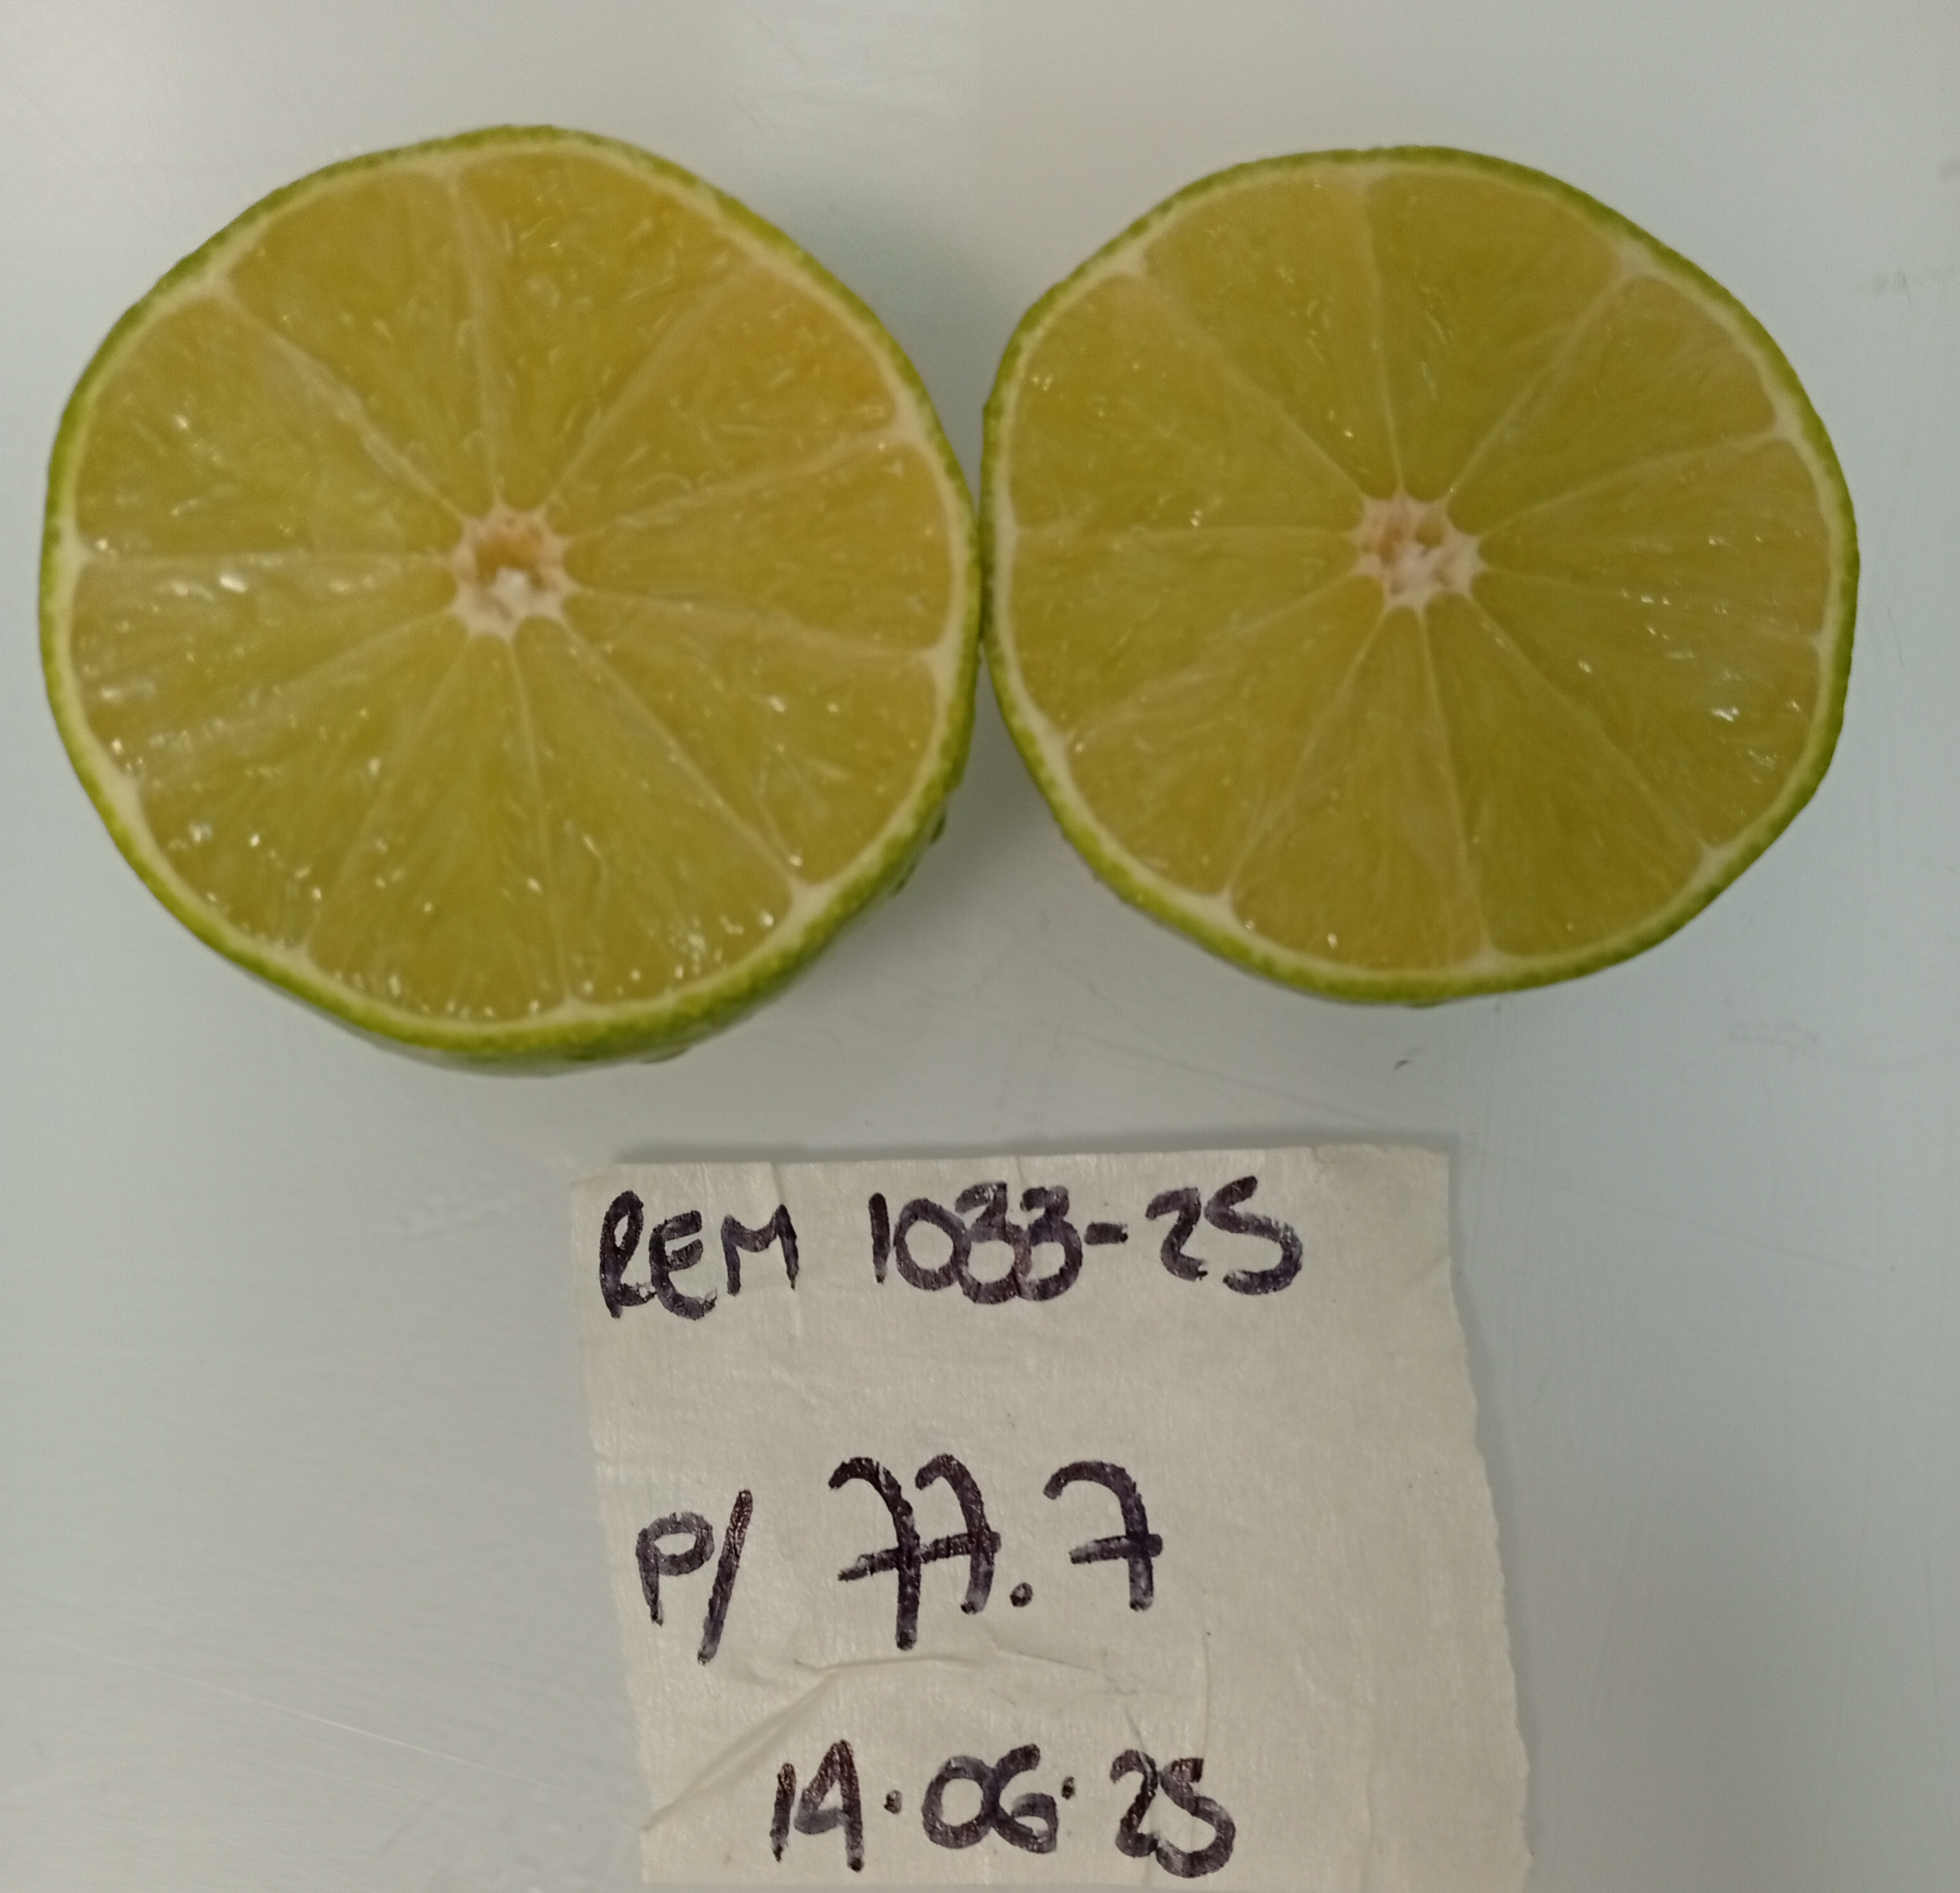 REM 1033-25
P/ 77.7
14.06.25